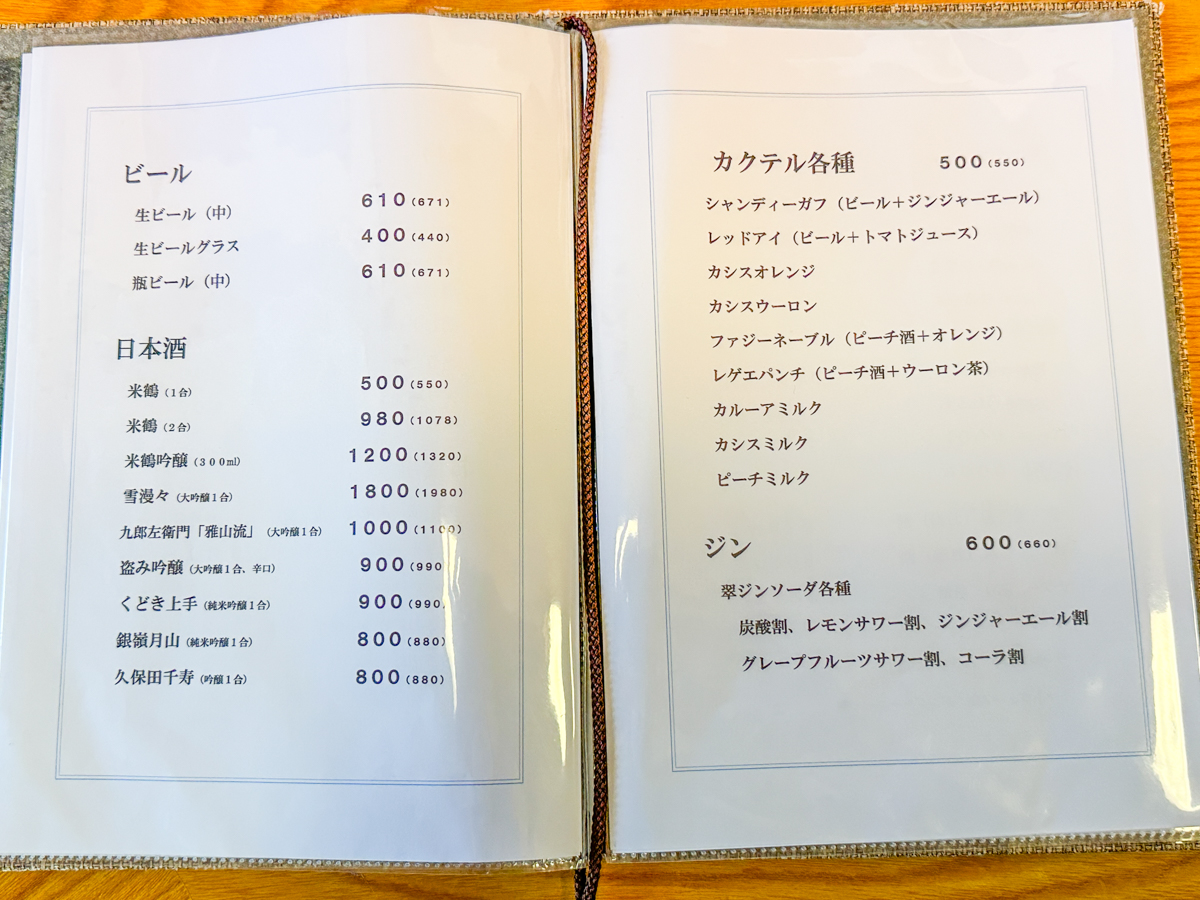 ビール
生ビール（中） 610（671）
生ビールグラス 400（440）
瓶ビール（中） 610（671）
日本酒
米鶴（１合） 500（550）
米鶴（２合） 980（1078）
米鶴吟醸（３００㎖） 1200（1320）
雪漫々（大吟醸１合） 1800（1980）
九郎左衛門「雅山流」（大吟醸１合） 1000（1100）
盗み吟醸（大吟醸１合、辛口） 900（990
くどき上手（純米吟醸１合） 900（990
銀嶺月山（純米吟醸１合） 800（880）
久保田千寿（吟醸１合） 800（880）
カクテル各種 500（550）
シャンディーガフ（ビール＋ジンジャーエール）
レッドアイ（ビール＋トマトジュース）
カシスオレンジ
カシスウーロン
ファジーネーブル（ピーチ酒＋オレンジ）
レゲエパンチ（ピーチ酒＋ウーロン茶）
カルーアミルク
カシスミルク
ピーチミルク
ジン 600（660）
翠ジンソーダ各種
炭酸割、レモンサワー割、ジンジャーエール割
グレープフルーツサワー割、コーラ割